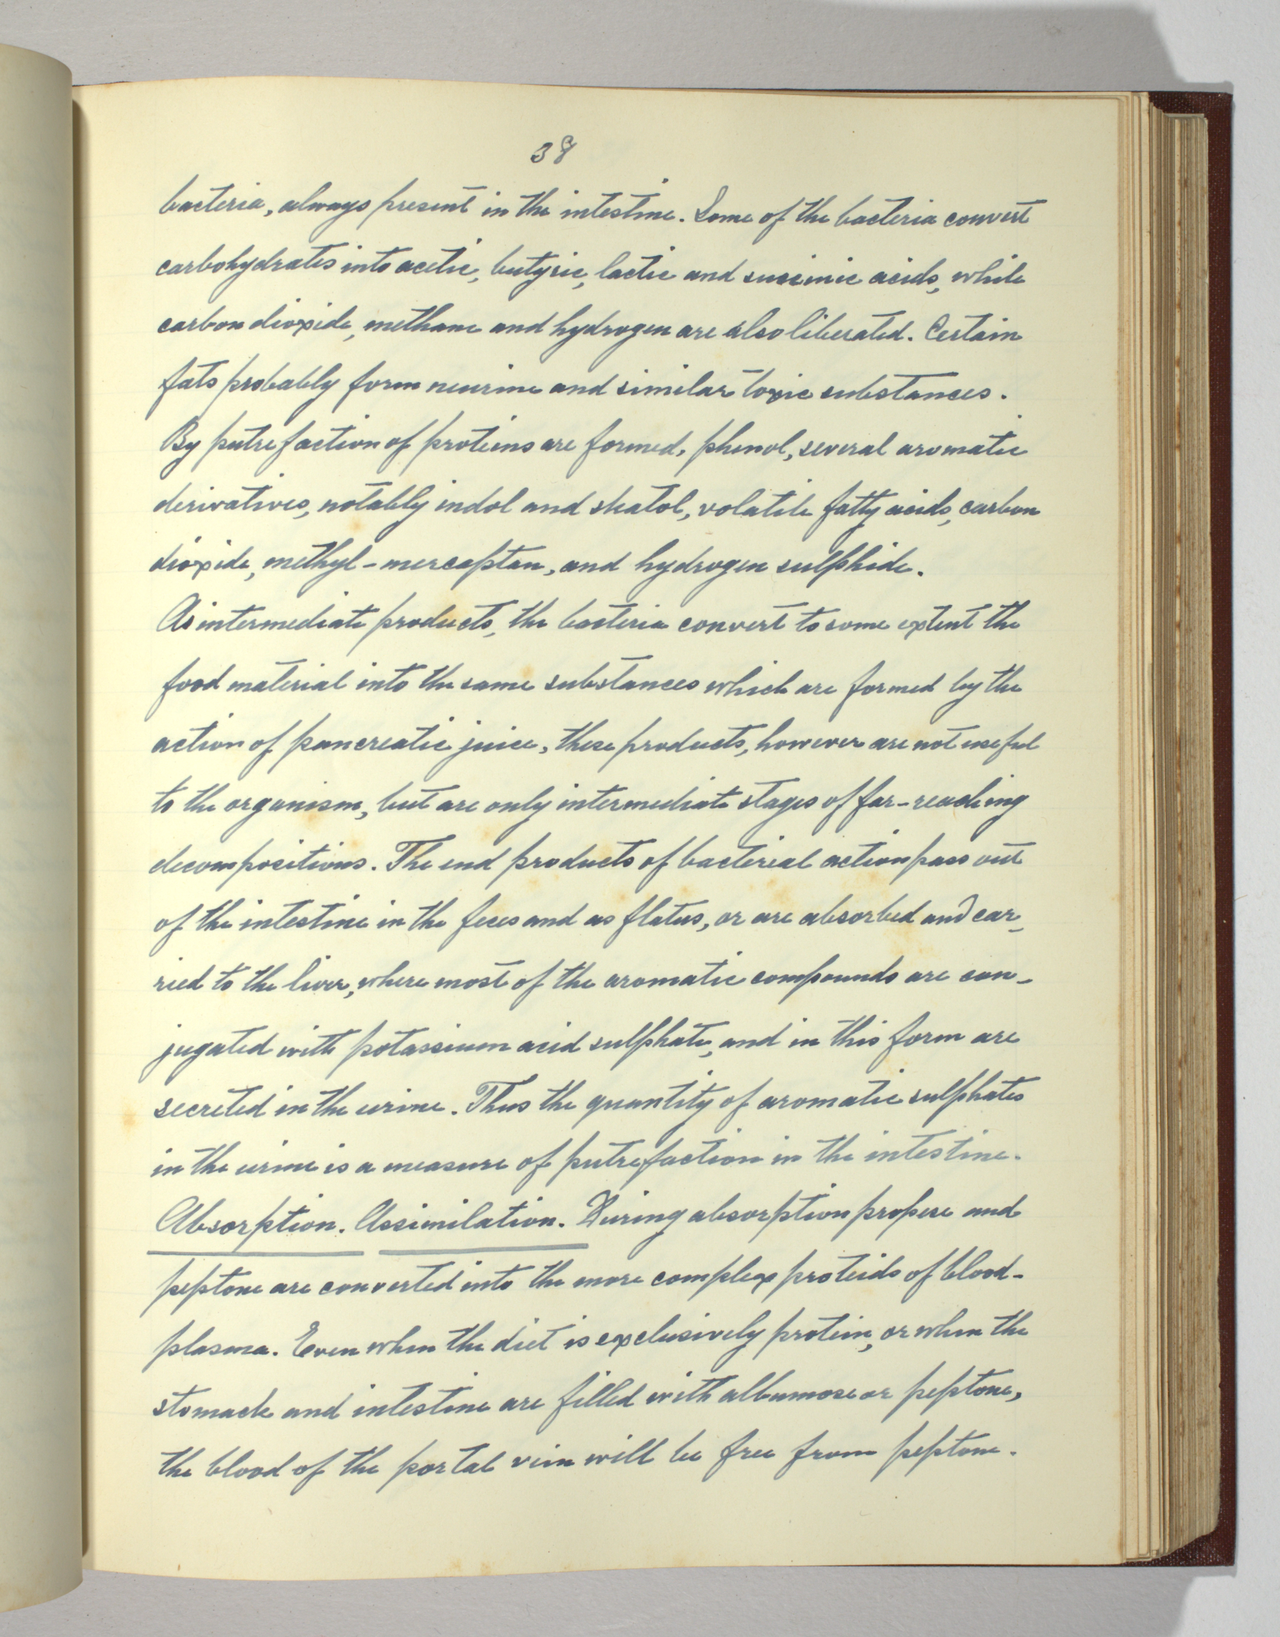 38
bacteria, always present in the intestine. Some of the bacteria convert
carbohydrates into acetic, butyric, lactic and succinic acids, while
carbon dioxide, methane and hydrogen are also liberated. Certain
fats probably form neurine and similar toxic substances.
By putrefaction of proteins are formed, phenol, several aromatic
derivatives, notably indol and skatol, volatile fatty acids, carbon
dioxide, methyl-mercaptan, and hydrogen sulphide.
As intermediate products, the bacteria convert to some extent the
food material into the same substances which are formed by the
action of pancreatic juice, these products, however are not useful
to the organism, but are only intermediate stages of far-reaching
decompositions. The end products of bacterial action pass out
of the intestine in the feces and as flatus, or are absorbed and car-
ried to the liver, where most of the aromatic compounds are con-
jugated with potassium acid sulphate, and in this form are
secreted in the urine. Thus the quantity of aromatic sulphates
in the urine is a measure of putrefaction in the intestine.
Absorption. Assimilation. During absorption propese and
peptone are converted into the more complex proteids of blood-
plasma. Even when the diet is exclusively protein, or when the
stomach and intestine are filled with albumose or peptone,
the blood of the portal vein will be free from peptone.